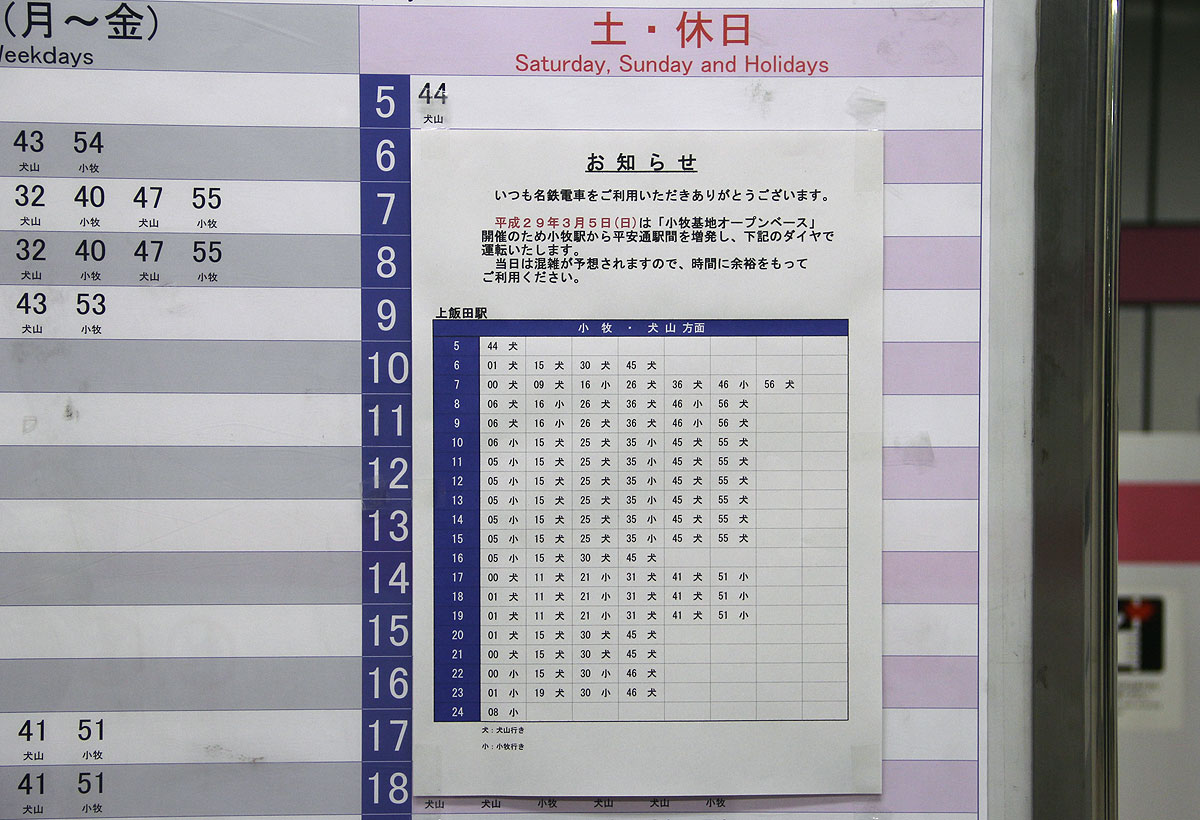 (月～金)
Weekdays
土・休日
Saturday, Sunday and Holidays
5 44
犬山
43 54 6
犬山 小牧
32 40 47 55 7
犬山 小牧 犬山 小牧
32 40 47 55 8
犬山 小牧 犬山 小牧
43 53 9
犬山 小牧
10
11
12
13
14
15
16
41 51 17
犬山 小牧
41 51 18
犬山 小牧 犬山 犬山 小牧 犬山 犬山 小牧
お知らせ
いつも名鉄電車をご利用いただきありがとうございます。
平成29年3月5日(日)は「小牧基地オープンベース」
開催のため小牧駅から平安通駅間を増発し、下記のダイヤで
運転いたします。
当日は混雑が予想されますので、時間に余裕をもって
ご利用ください。
上飯田駅
小牧・犬山方面
5 44 犬
6 01 犬 15 犬 30 犬 45 犬
7 00 犬 09 犬 16 小 26 犬 36 犬 46 小 56 犬
8 06 犬 16 小 26 犬 36 犬 46 小 56 犬
9 06 犬 16 小 26 犬 36 犬 46 小 56 犬
10 06 小 15 犬 25 犬 35 小 45 犬 55 犬
11 05 小 15 犬 25 犬 35 小 45 犬 55 犬
12 05 小 15 犬 25 犬 35 小 45 犬 55 犬
13 05 小 15 犬 25 犬 35 小 45 犬 55 犬
14 05 小 15 犬 25 犬 35 小 45 犬 55 犬
15 05 小 15 犬 25 犬 35 小 45 犬 55 犬
16 05 小 15 犬 30 犬 45 犬
17 00 犬 11 犬 21 小 31 犬 41 犬 51 小
18 01 犬 11 犬 21 小 31 犬 41 犬 51 小
19 01 犬 11 犬 21 小 31 犬 41 犬 51 小
20 01 犬 15 犬 30 犬 45 犬
21 00 犬 15 犬 30 犬 45 犬
22 00 小 15 犬 30 小 46 犬
23 01 小 19 犬 30 小 46 犬
24 08 小
犬：犬山行き
小：小牧行き